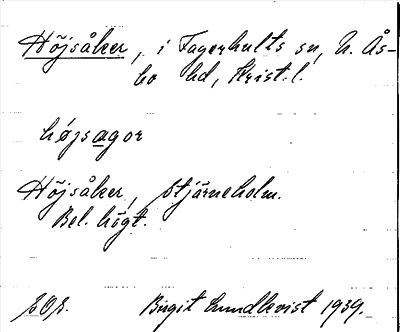 Höjsåker, i Fagerhults sn, N. Ås-
bo hd, Krist. l.
højsagor
Höjsåker, Stjärneholm.
Bel. högt.
Birgit Lundkvist 1939.